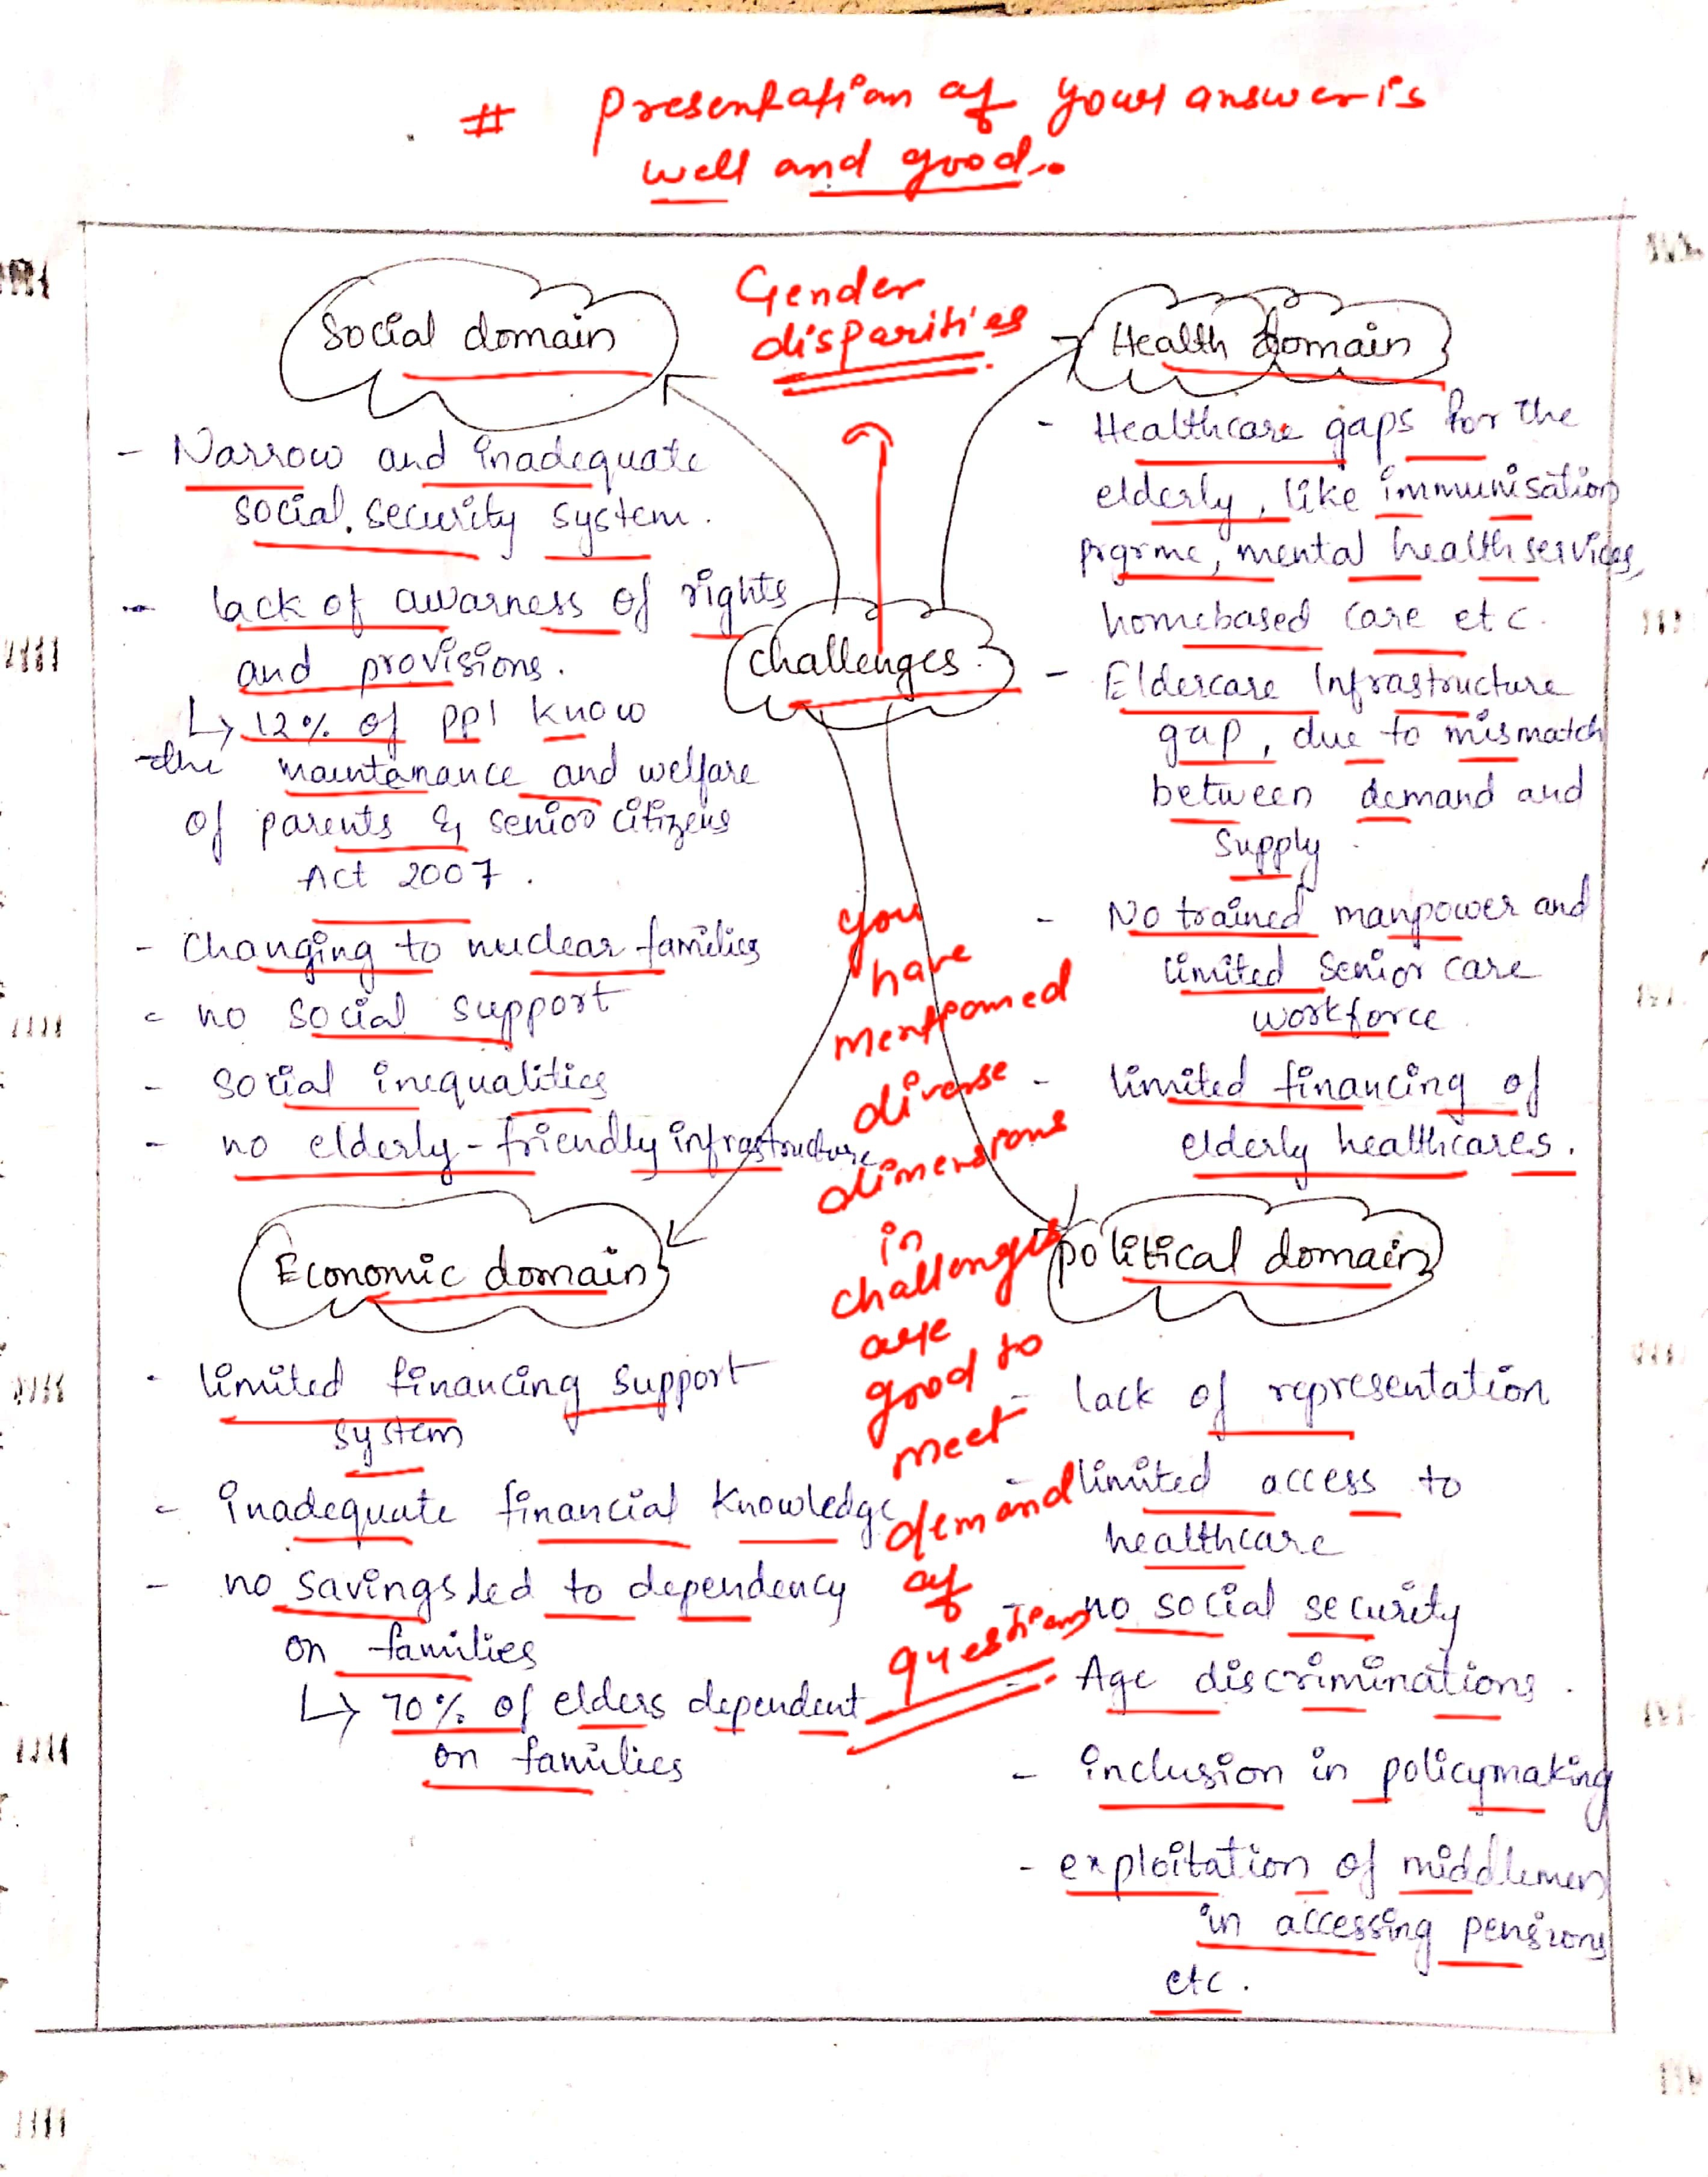 # Presentation of your answer is
well and good.
Gender
disparities
Social domain
- Narrow and inadequate
social security system.
- lack of awarness of rights
and provisions.
↳ 12% of ppl know
the maintanance and welfare
of parents & senior citizens
Act 2007.
- Changing to nuclear families
- no social support
- social inequalities
- no elderly-friendly infrastructure
Challenges
Health domain
- Healthcare gaps for the
elderly, like immunisation
prgrme, mental health services,
homebased care etc.
- Eldercare Infrastructure
gap, due to mismatch
between demand and
supply.
- No trained manpower and
limited senior care
workforce.
- limited financing of
elderly healthcares.
you
have
mentioned
diverse
dimensions
in
challenges
are
good to
meet
demand
of
question
Economic domain
- limited financing support
system
- inadequate financial knowledge
- no savings led to dependency
on families
↳ 70% of elders dependent
on families
Political domain
- lack of representation
- limited access to
healthcare
- no social security
- Age discriminations.
- inclusion in policymaking
- exploitation of middlemen
in accessing pensions
etc.